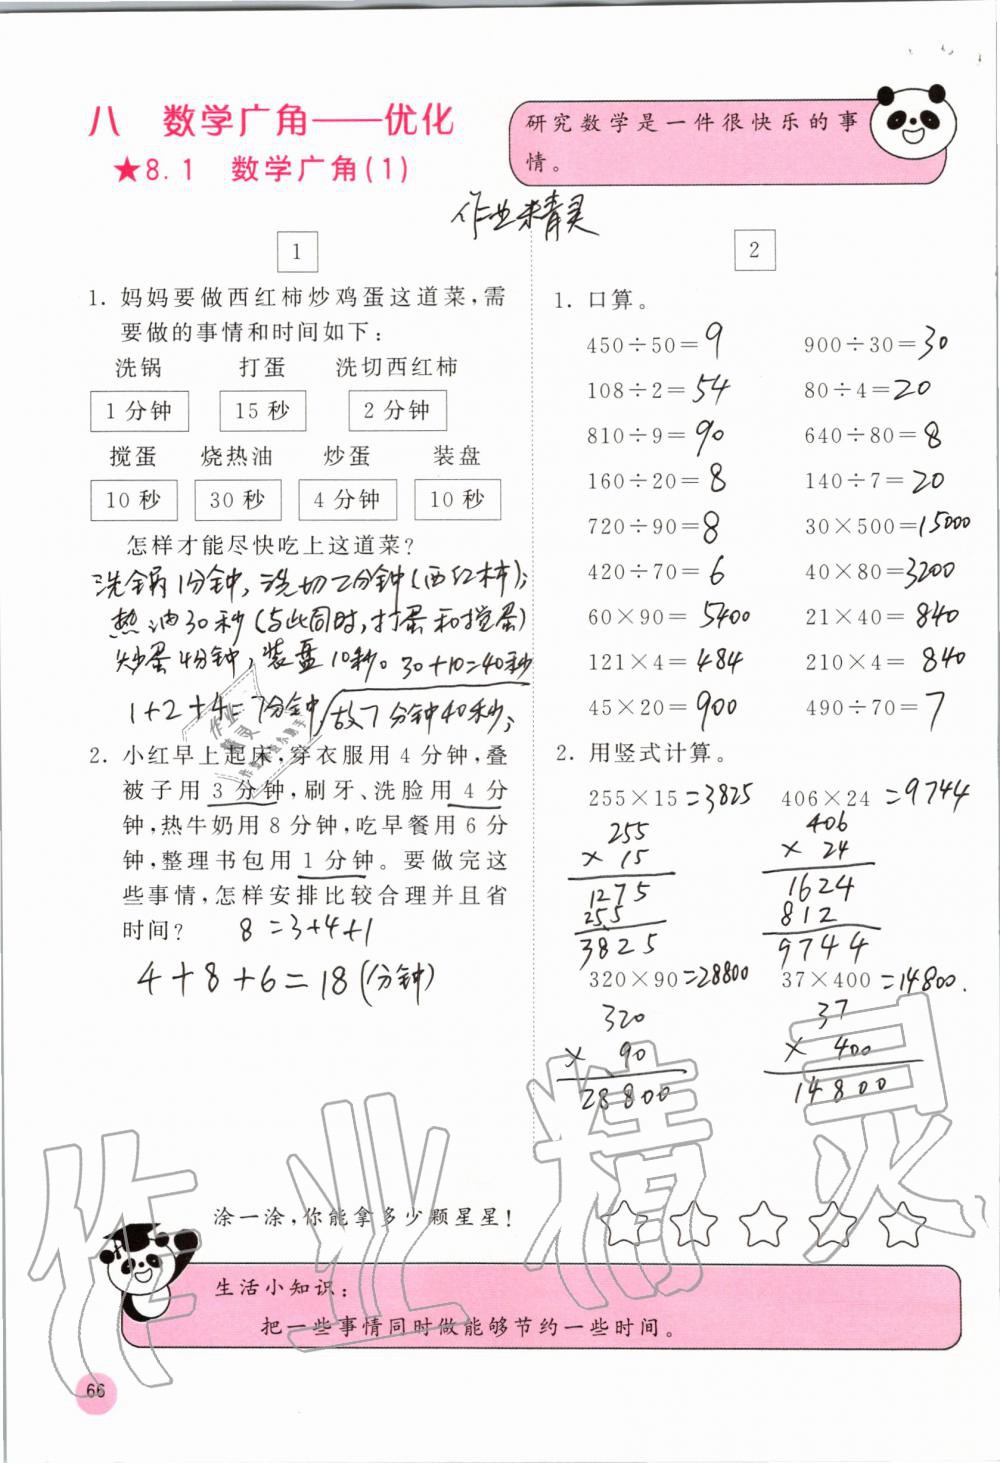 八 数学广角——优化
★8.1 数学广角(1)
研究数学是一件很快乐的事
情。
作业未精灵
1
1. 妈妈要做西红柿炒鸡蛋这道菜,需
要做的事情和时间如下:
洗锅 打蛋 洗切西红柿
1分钟 15秒 2分钟
搅蛋 烧热油 炒蛋 装盘
10秒 30秒 4分钟 10秒
怎样才能尽快吃上这道菜?
洗锅1分钟,洗切2分钟(西红柿);
热油30秒(与此同时,打蛋和搅蛋)
炒蛋4分钟,装盘10秒。30+10=40秒
1+2+4=7分钟 故7分钟40秒;
2. 小红早上起床,穿衣服用4分钟,叠
被子用3分钟,刷牙、洗脸用4分
钟,热牛奶用8分钟,吃早餐用6分
钟,整理书包用1分钟。要做完这
些事情,怎样安排比较合理并且省
时间? 8=3+4+1
4+8+6=18(分钟)
2
1. 口算。
450÷50=9 900÷30=30
108÷2=54 80÷4=20
810÷9=90 640÷80=8
160÷20=8 140÷7=20
720÷90=8 30×500=15000
420÷70=6 40×80=3200
60×90=5400 21×40=840
121×4=484 210×4=840
45×20=900 490÷70=7
2. 用竖式计算。
255×15=3825 406×24=9744
255 406
×15 ×24
1275 1624
255 812
3825 9744
320×90=28800 37×400=14800.
320 37
×90 ×400
28800 14800
作业精灵
涂一涂,你能拿多少颗星星!
生活小知识:
把一些事情同时做能够节约一些时间。
66